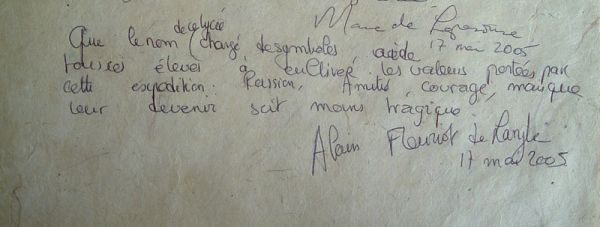 de ce lycée
de
17 mai 2005
Que le nom chargé de symboles, aide
tous ces élèves à cultiver les valeurs portées par
cette expédition : Passion, Amitié, courage, mais que
leur devenir soit moins tragique.
Alain Fleuriot de Langle
17 mai 2005